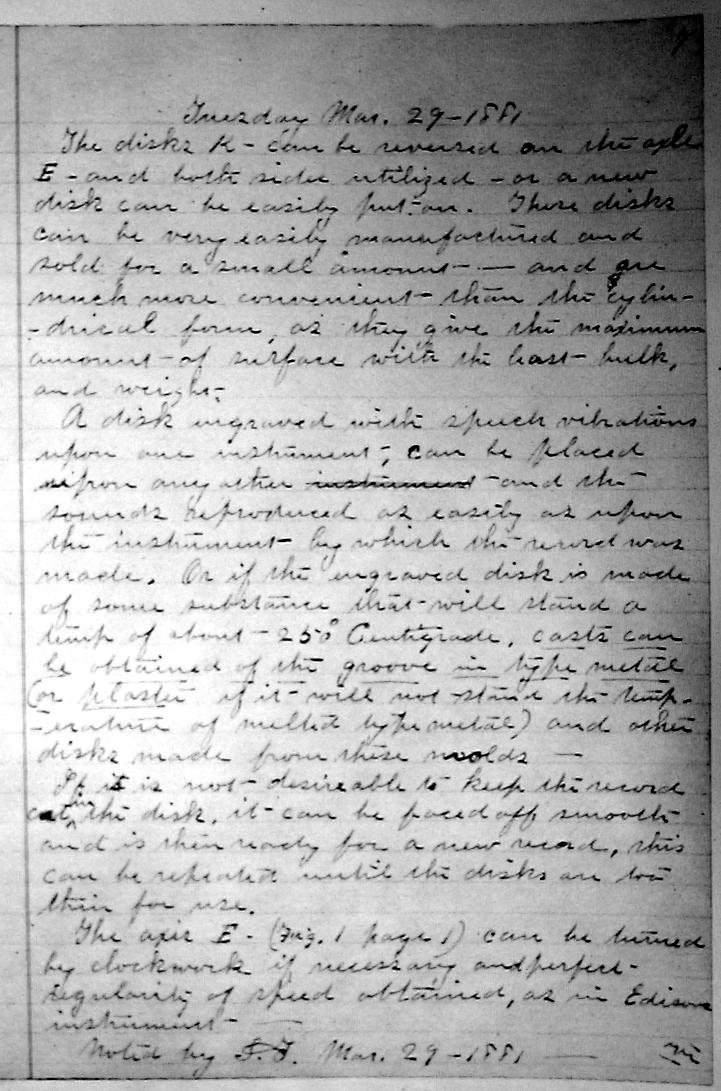 Tuesday Mar. 29-1881
The disks K - can be reversed on the axle
E - and both sides utilized - or a new
disk can be easily put on. These disks
can be very easily manufactured and
sold for a small amount - — and are
much more convenient than the cylin-
-drical form, as they give the maximum
amount of surface with the least bulk,
and weight.
A disk engraved with speech vibrations
upon one instrument, can be placed
upon any other instrument and the
sounds reproduced as easily as upon
the instrument by which the record was
made. Or if the engraved disk is made
of some substance that will stand a
temp of about 250° Centigrade, casts can
be obtained of the groove in type metal
(or plaster if it will not stand the temp-
-erature of melted type metal) and other
disks made from these molds —
If it is not desireable to keep the record
cut in the disk, it can be faced off smooth
and is then ready for a new record, this
can be repeated until the disks are too
thin for use.
The axis E - (Fig. 1 page 1) can be turned
by clockwork if necessary and perfect
regularity of speed obtained, as in Edisons
instrument —
Noted by Mar. 29-1881 —